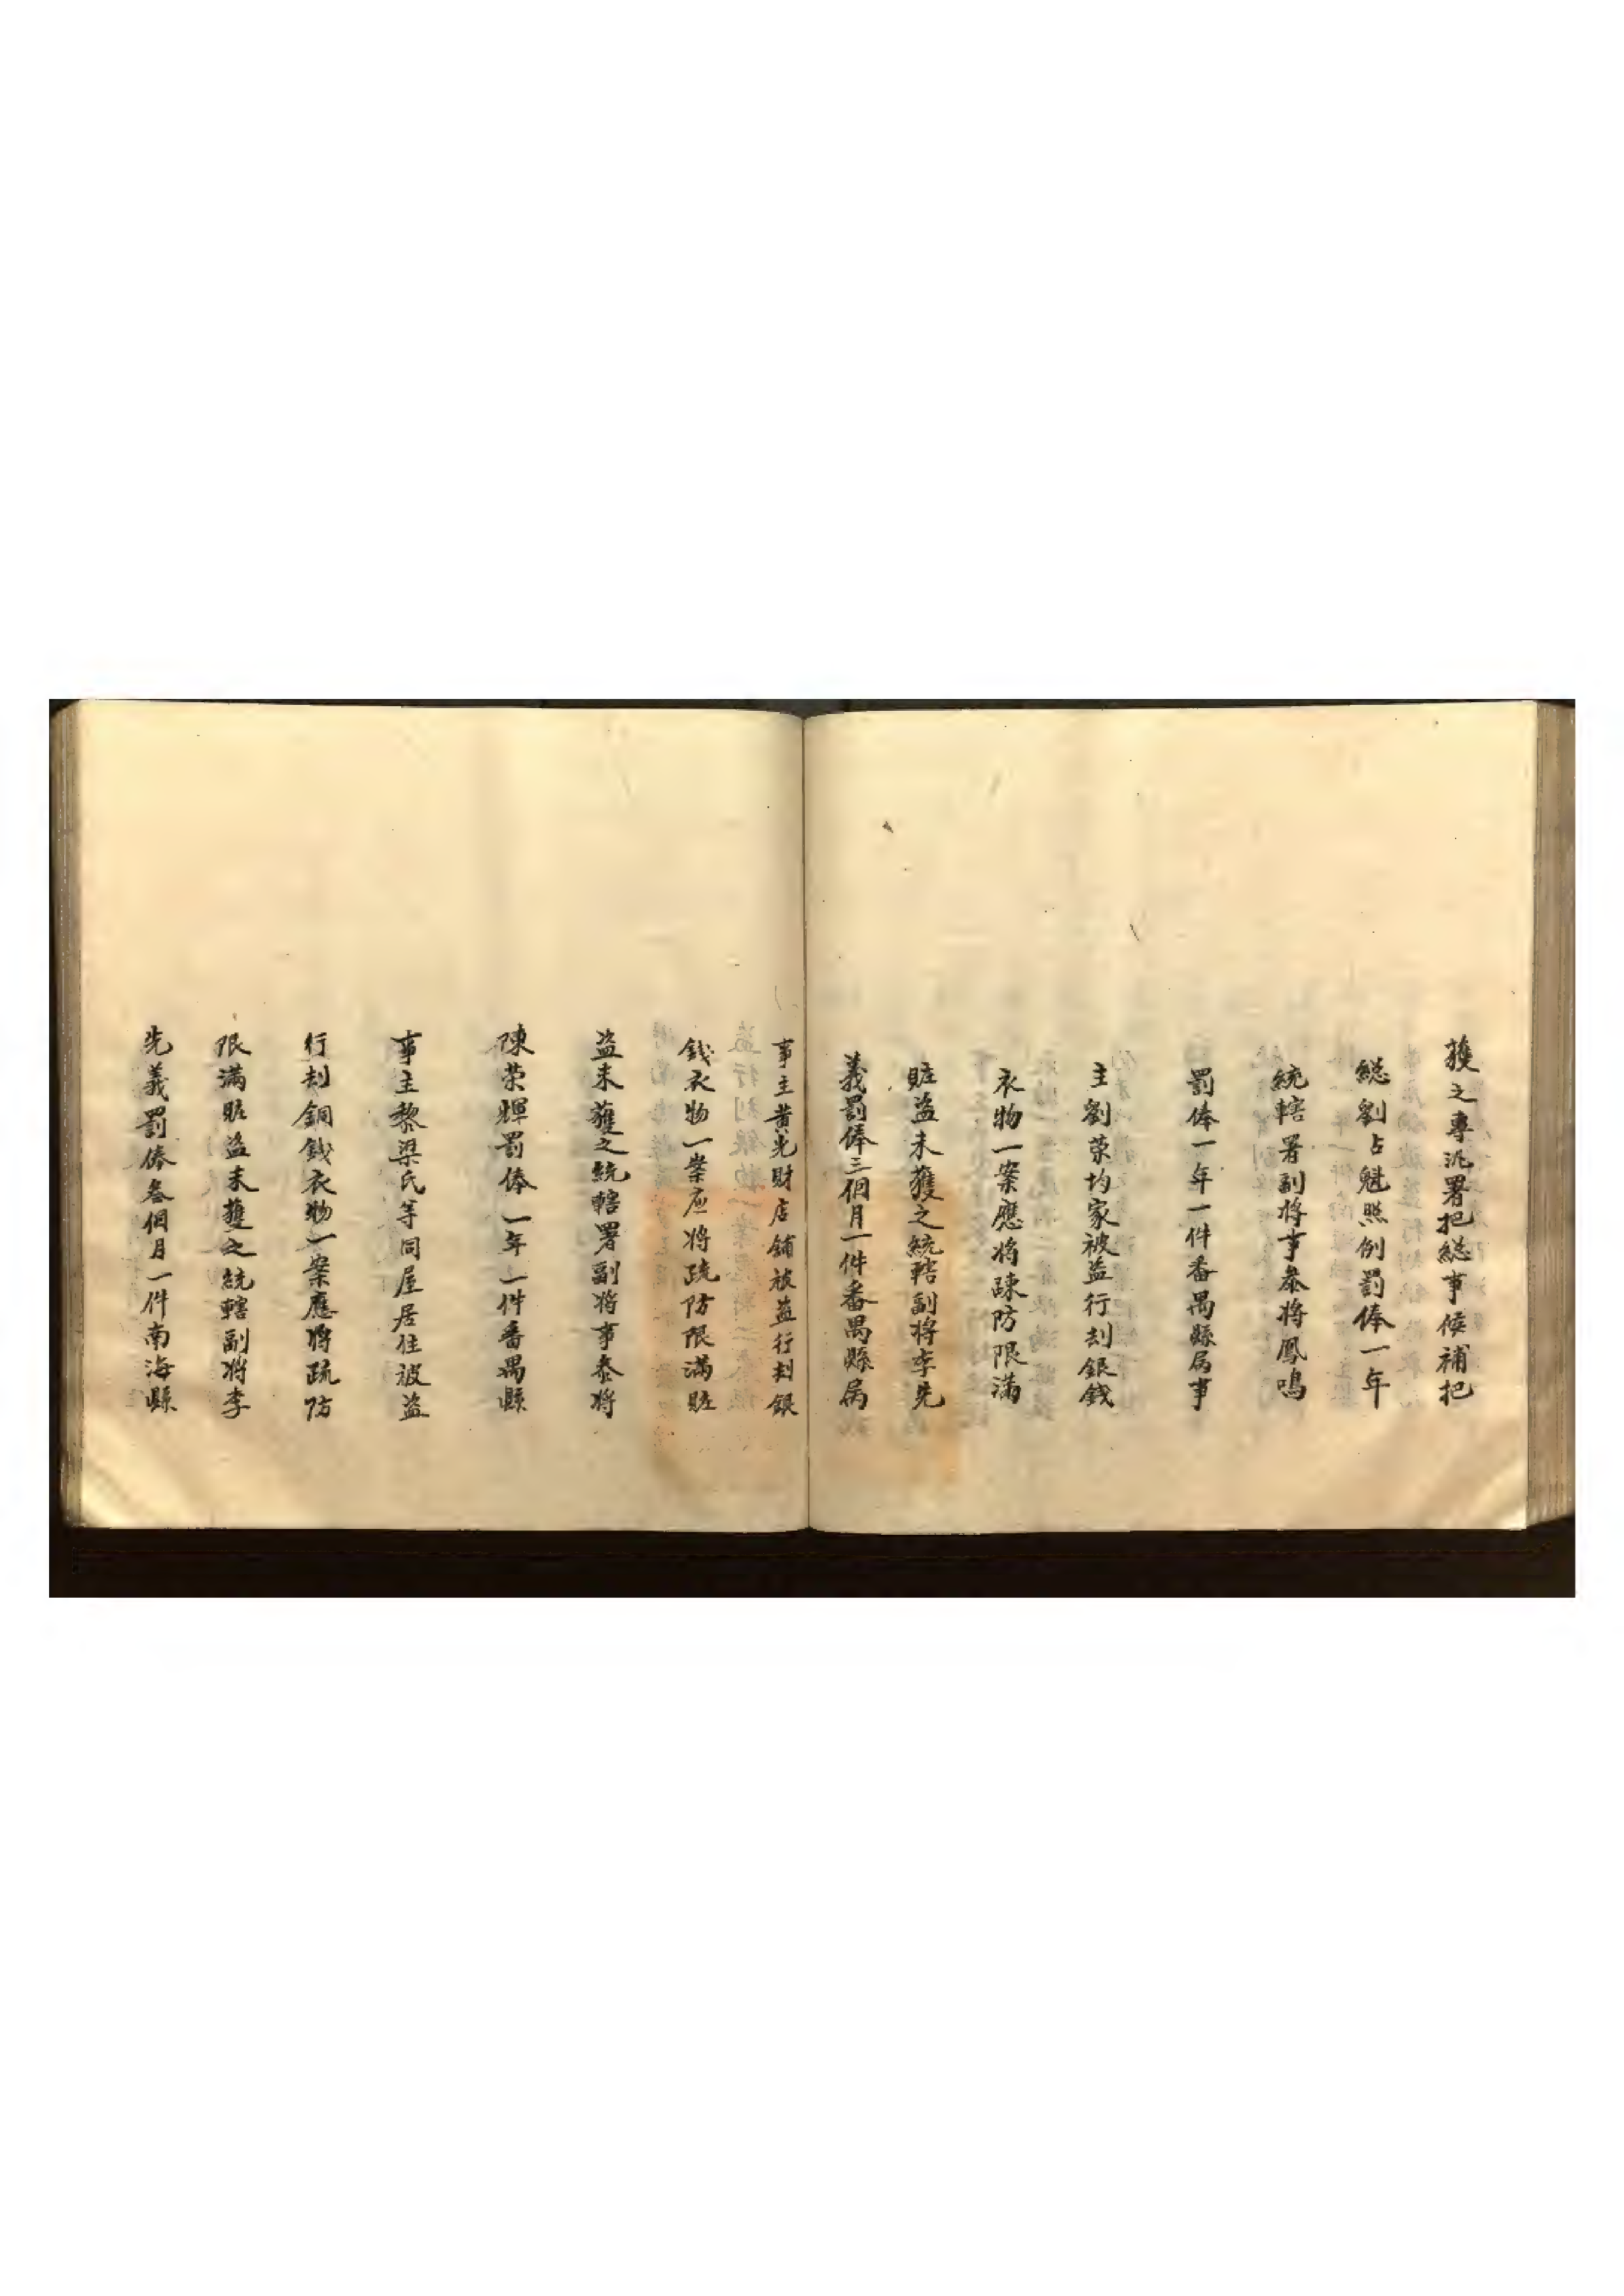 獲之專汛署把総事候補把
総劉占魁照例罰俸一年
統轄署副將事叅將鳳鳴
罰俸一年一件番禺縣属事
主劉荣均家被盗行刦銀錢
衣物一案應將踈防限滿
賍盗未獲之統轄副將李先
義罰俸三個月一件番禺縣属
事主黄光財店鋪被盗行刦銀
錢衣物一案应將疏防限滿賍
盗未獲之統轄署副將事叅將
陳荣輝罰俸一年一件番禺縣
事主黎梁氏等同屋居住被盗
行刦銅錢衣物一案應將疏防
限滿賍盗未獲之統轄副將李
先義罰俸叁個月一件南海縣